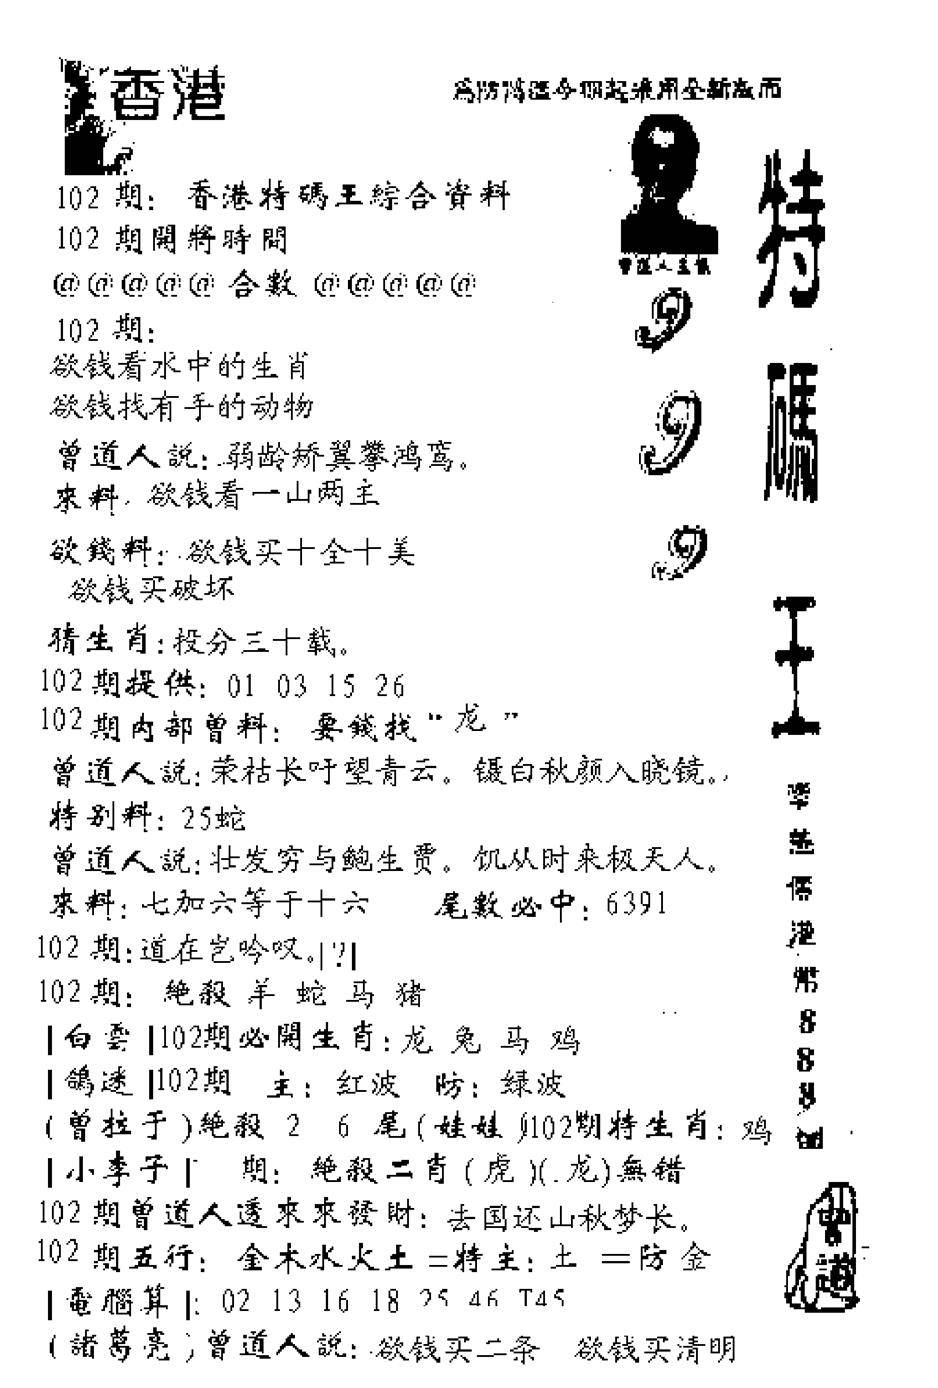 香港
為防滿溫今期起乘用全新版面
102 期: 香港特碼王綜合資料
102 期開將時間
@@@@@ 合數 @@@@@
102 期:
欲钱看水中的生肖
欲钱找有手的动物
曾道人説: 弱龄矫翼攀鸿鸾。
來料: 欲钱看一山两主
欲錢料: 欲钱买十全十美
欲钱买破坏
猜生肖: 投分三十载。
102期提供: 01 03 15 26
102期内部曾料: 要錢找“龙”
曾道人説: 荣枯长吁望青云。镊白秋颜入晓镜。
特别料: 25蛇
曾道人説: 壮发穷与鲍生贾。饥从时来极天人。
來料: 七加六等于十六 尾數必中: 6391
102期: 道在岂吟叹。|?|
102期: 絶殺 羊 蛇 马 猪
|白雲|102期必開生肖: 龙 兔 马 鸡
|鴿迷|102期 主: 红波 防: 绿波
(曾拉于)絶殺 2 6 尾(娃娃)102期特生肖: 鸡
|小李子| 期: 絶殺二肖(虎)(龙)無错
102期曾道人透來來發財: 去国还山秋梦长。
102期五行: 金木水火土=特主: 土 =防 金
|電腦算|: 02 13 16 18 25 46 T45
(諸葛亮)曾道人説: 欲钱买二条 欲钱买清明
曾道人主俵
9
9
9
特碼王
港幣888
曾道